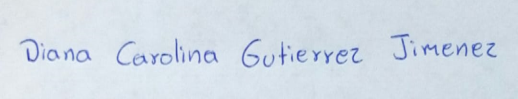 Diana Carolina Gutierrez Jimenez